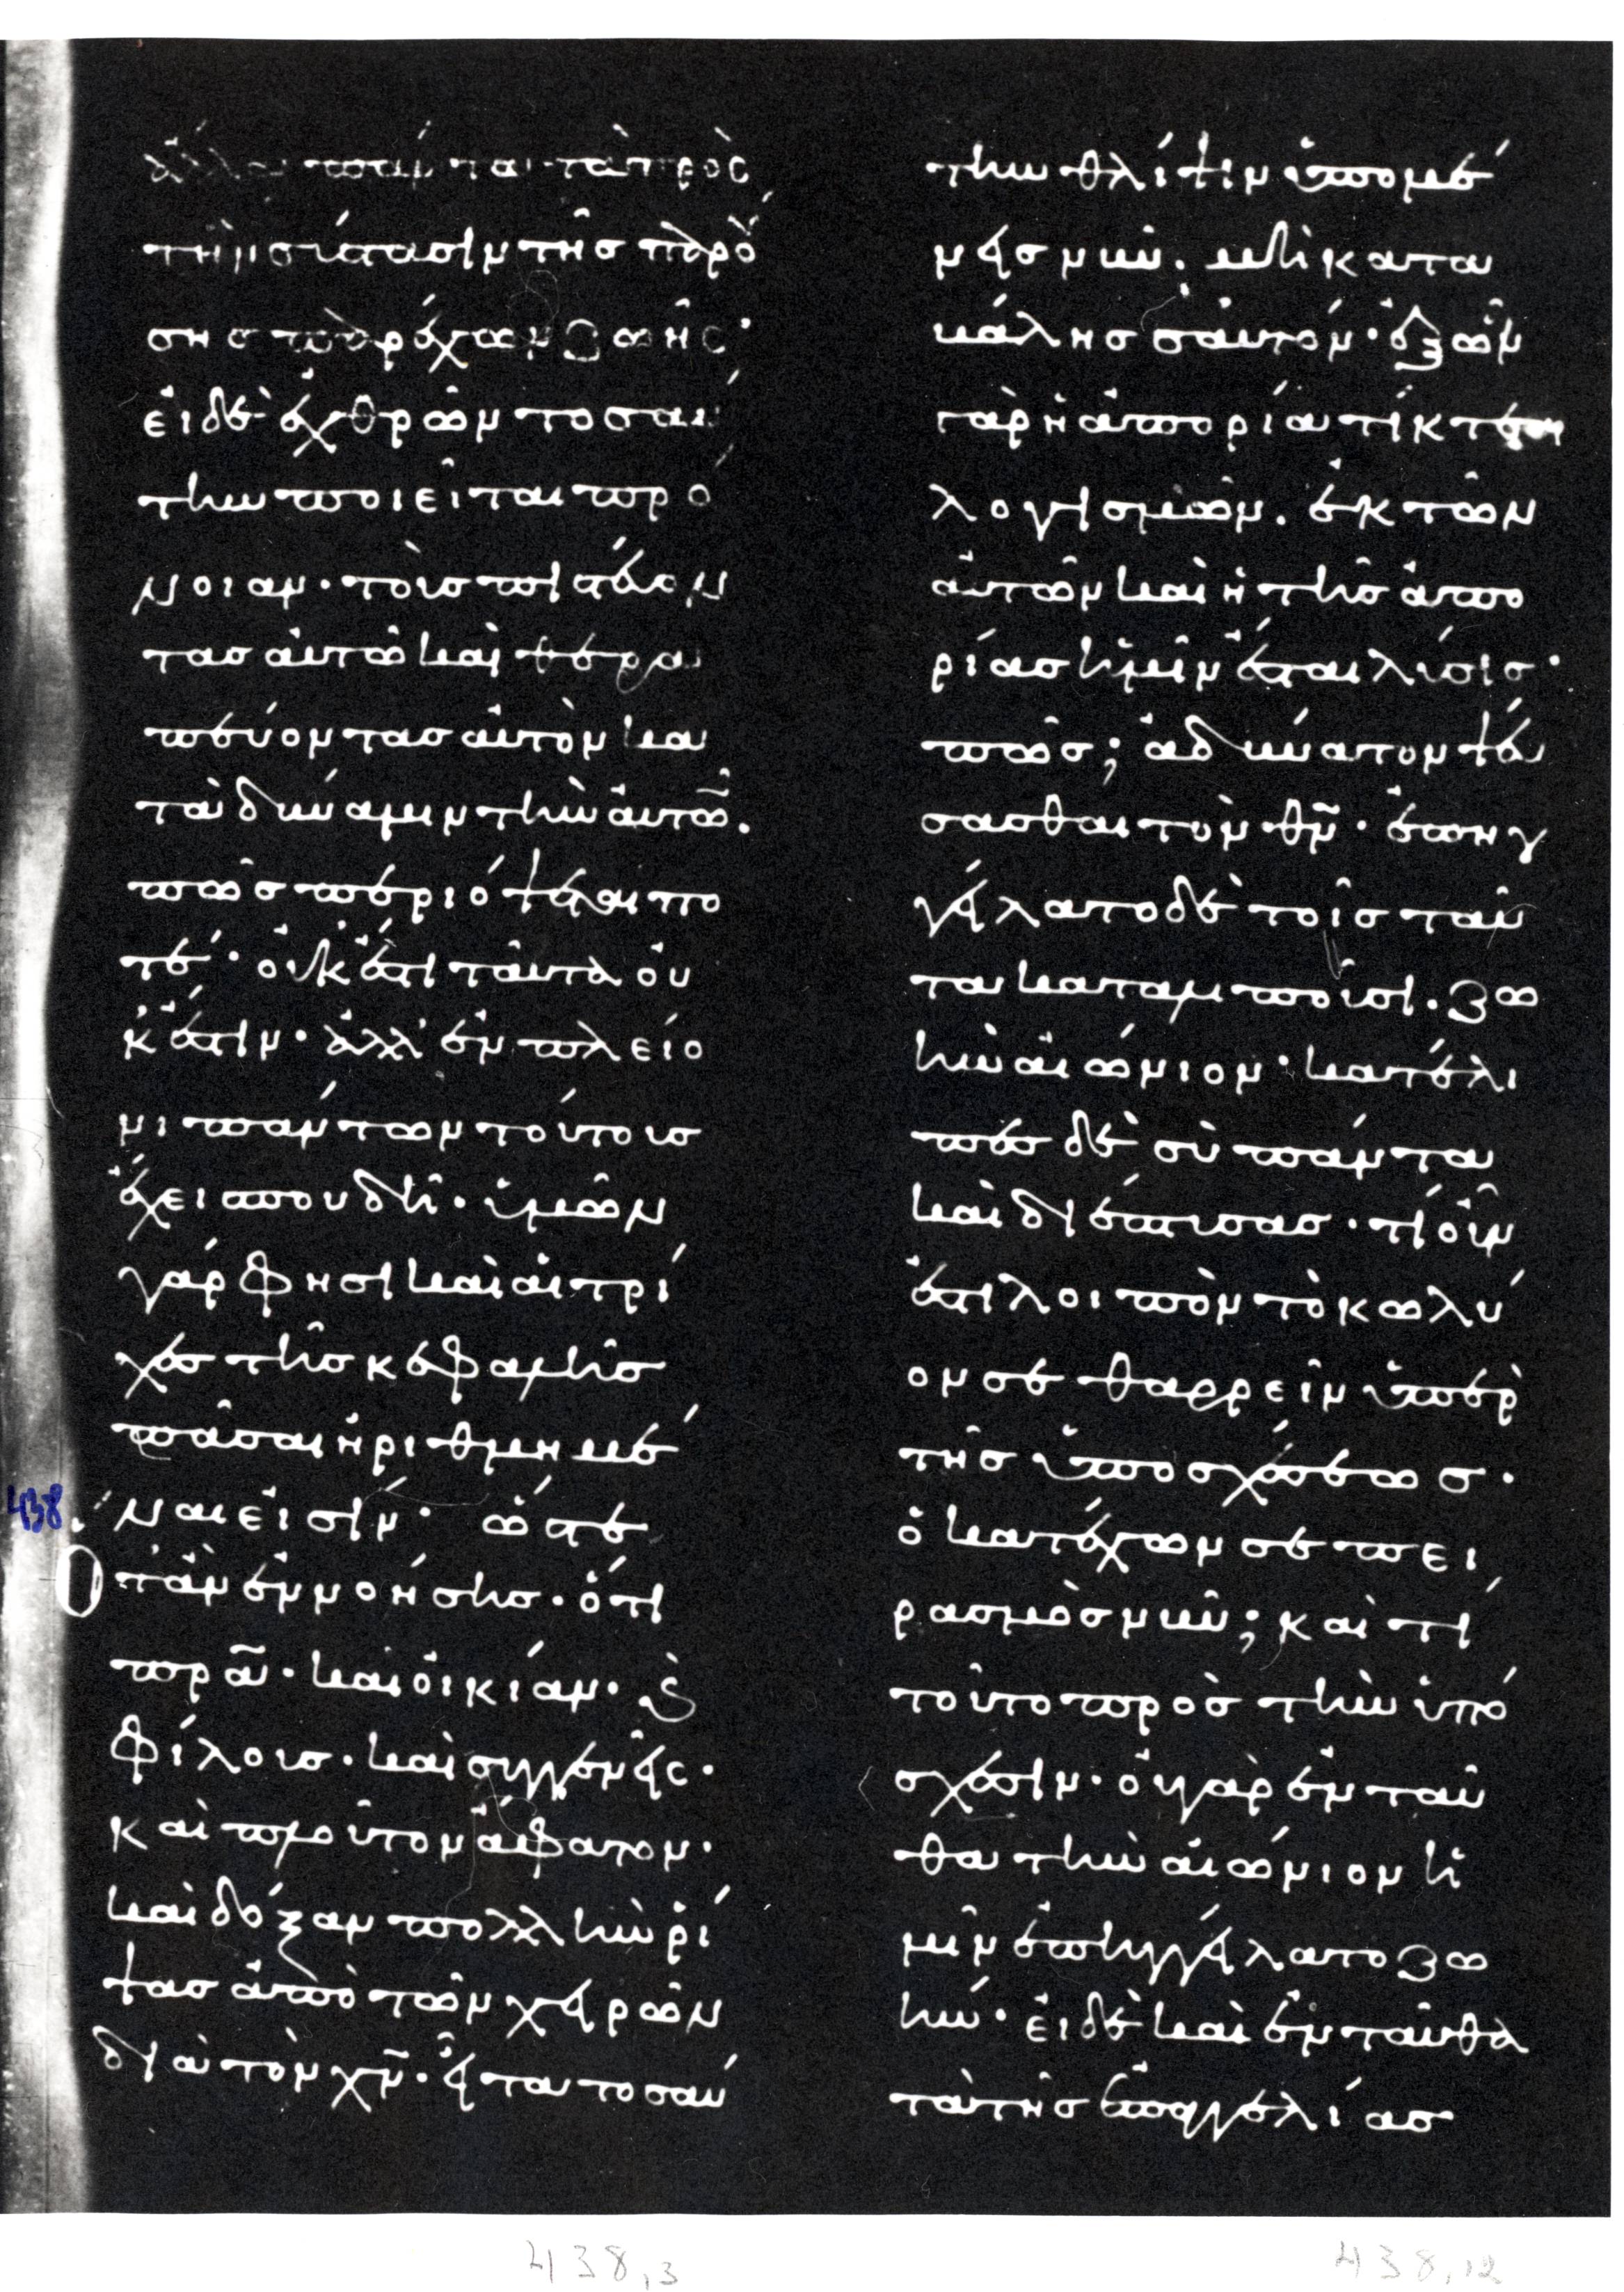 ἄλλα πάντα τὰ πρὸς
τὴν σύστασιν τῆς παρού
σης παρέχων ζωῆς·
εἰ δὲ ἐχθρῶν τοσαύ
την ποιεῖται πρό
νοιαν· τοὺς πιστεύον
τας αὐτῶ καὶ θερα
πεύοντας αὐτὸν κα
τὰ δύναμιν τὴν αὐτῶν.
πῶς περιόψεται πο
τέ· οὐκ ἔστι ταῦτα οὐ
κ ἔστιν· ἀλλ' ἐν πλείο
νι πάντων τούτους
ἔχει σπουδῆ· ὑμῶν
γάρ φησι καὶ αἱ τρί
χες τῆς κεφαλῆς
πᾶσαι ἠριθμημέ
ναι εἰσίν· ὥστε
πᾶν ἐννοήσης· ὅτι
πρα· καὶ οἰκίαν· καὶ
φίλους· καὶ συγγενεῖς·
καὶ πλοῦτον ἄφατον·
καὶ δόξαν πολλὴν ῥί
ψας ἀπὸ τῶν χειρῶν
διὰ τὸν χν· εἶτα τοσαύ
την θλίψιν ὑπομέ
νεις νῦν. μὴ κατα
κάλης σαυτόν· ἐξ ὧν
γὰρ ἡ ἀπορία τίκτεται
λογισμῶν. ἐκ τῶν
αὐτῶν καὶ ἡ τῆς ἀπο
ρίας ἡμῖν ἔσται λύσις·
πῶς; ἀδύνατον ψεύ
σασθαι τὸν θν· ἐπηγ
γείλατο δὲ τοῖς ταῦ
τα καταλιποῦσι. ζω
ὴν αἰώνιον· κατέλι
πες δὲ σὺ πάντα
καὶ διέπτυσας· τί οὖν
ἐστι λοιπὸν τὸ κωλύ
ον σε θαρρεῖν ὑπὲρ
τῆς ὑποσχέσεως·
ὁ κατέχων σε πει
ρασμὸς νῦν; καὶ τί
τοῦτο πρὸς τὴν ὑπό
σχεσιν· οὐ γὰρ ἐνταῦ
θα τὴν αἰώνιον ἡ
μῖν ἐπηγγείλατο ζω
ήν· εἰ δὲ καὶ ἐνταῦθα
τὰ τῆς ἐπαγγελίας
438
438,3
438,12